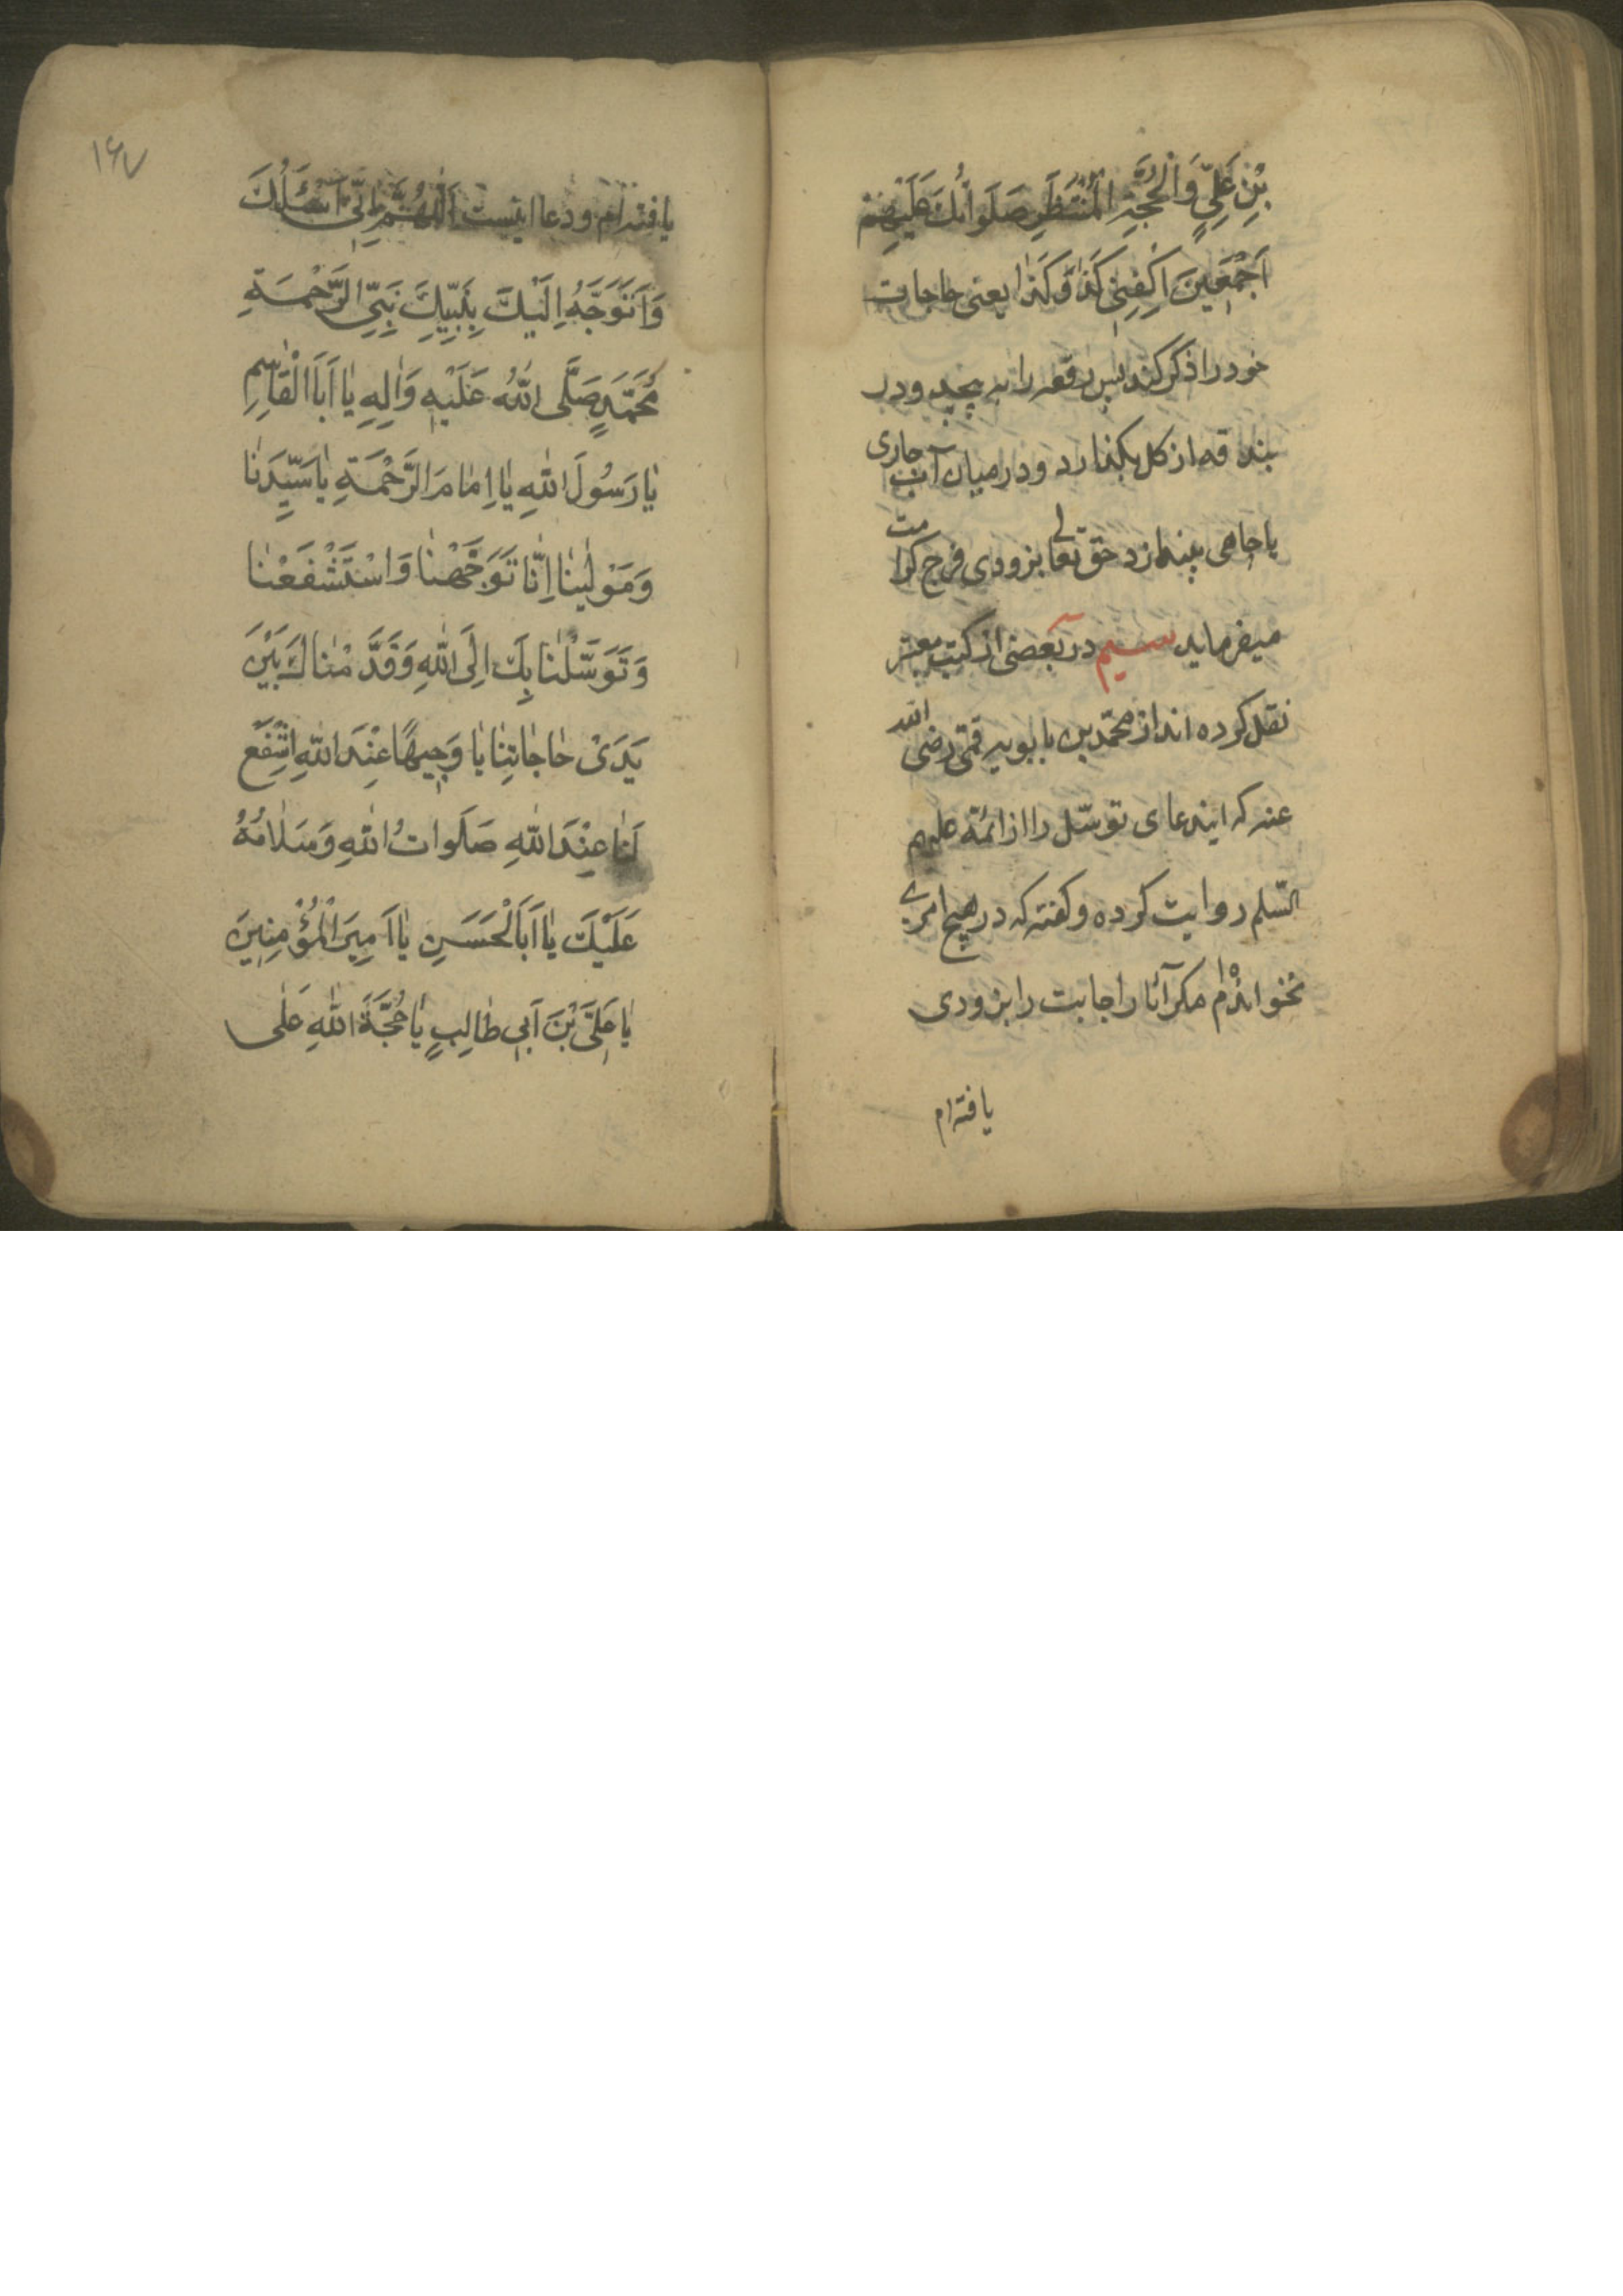 بْنِ عَلِيٍّ وَالْحُجَّةِ الْمُنْتَظَرِ صَلَوَاتُكَ عَلَيْهِمْ
اَجْمَعِينَ اِكْفِنِي كَذَا وَكَذَا يعنى حاجات
خود را ذكر كند پس رقعه را به پيچد و در
بندقه از كل بكذارد و در ميان آب جارى
يا چاهى بيندازد حق تعالى بزودى فرج كرامت
ميفرمايد سيم در بعضى از كتب معتبر
نقل كرده اند از محمّد بن بابويه قمّى رضى الله
عنه كه ايندعاى توسّل را از ائمّه عليهم
السّلم روايت كرده و كفته كه در هيچ امرى
نخوانده‌ام مكر آنا را جابت را بزودى
يافته‌ام
١٤٧
يافته‌ام و دعا اينست اَللّٰهُمَّ اِنِّي اَسْئَلُكَ
وَاَتَوَجَّهُ اِلَيْكَ بِنَبِيِّكَ نَبِيِّ الرَّحْمَةِ
مُحَمَّدٍ صَلَّى اللهُ عَلَيْهِ وَاٰلِهِ يٰا اَبَا الْقٰاسِمِ
يٰا رَسُولَ اللهِ يٰا اِمٰامَ الرَّحْمَةِ يٰا سَيِّدَنٰا
وَمَوْلٰينٰا اِنّٰا تَوَجَّهْنٰا وَاسْتَشْفَعْنٰا
وَتَوَسَّلْنٰا بِكَ اِلَى اللهِ وَقَدَّمْنٰاكَ بَيْنَ
يَدَىْ حٰاجٰاتِنٰا يٰا وَجِيهًا عِنْدَ اللهِ اِشْفَعْ
لَنٰا عِنْدَ اللهِ صَلَوٰاتُ اللهِ وَسَلٰامُهُ
عَلَيْكَ يٰا اَبَا الْحَسَنِ يٰا اَمِيرَ الْمُؤْمِنِينَ
يٰا عَلِىَّ بْنَ اَبِي طٰالِبٍ يٰا حُجَّةَ اللهِ عَلٰى